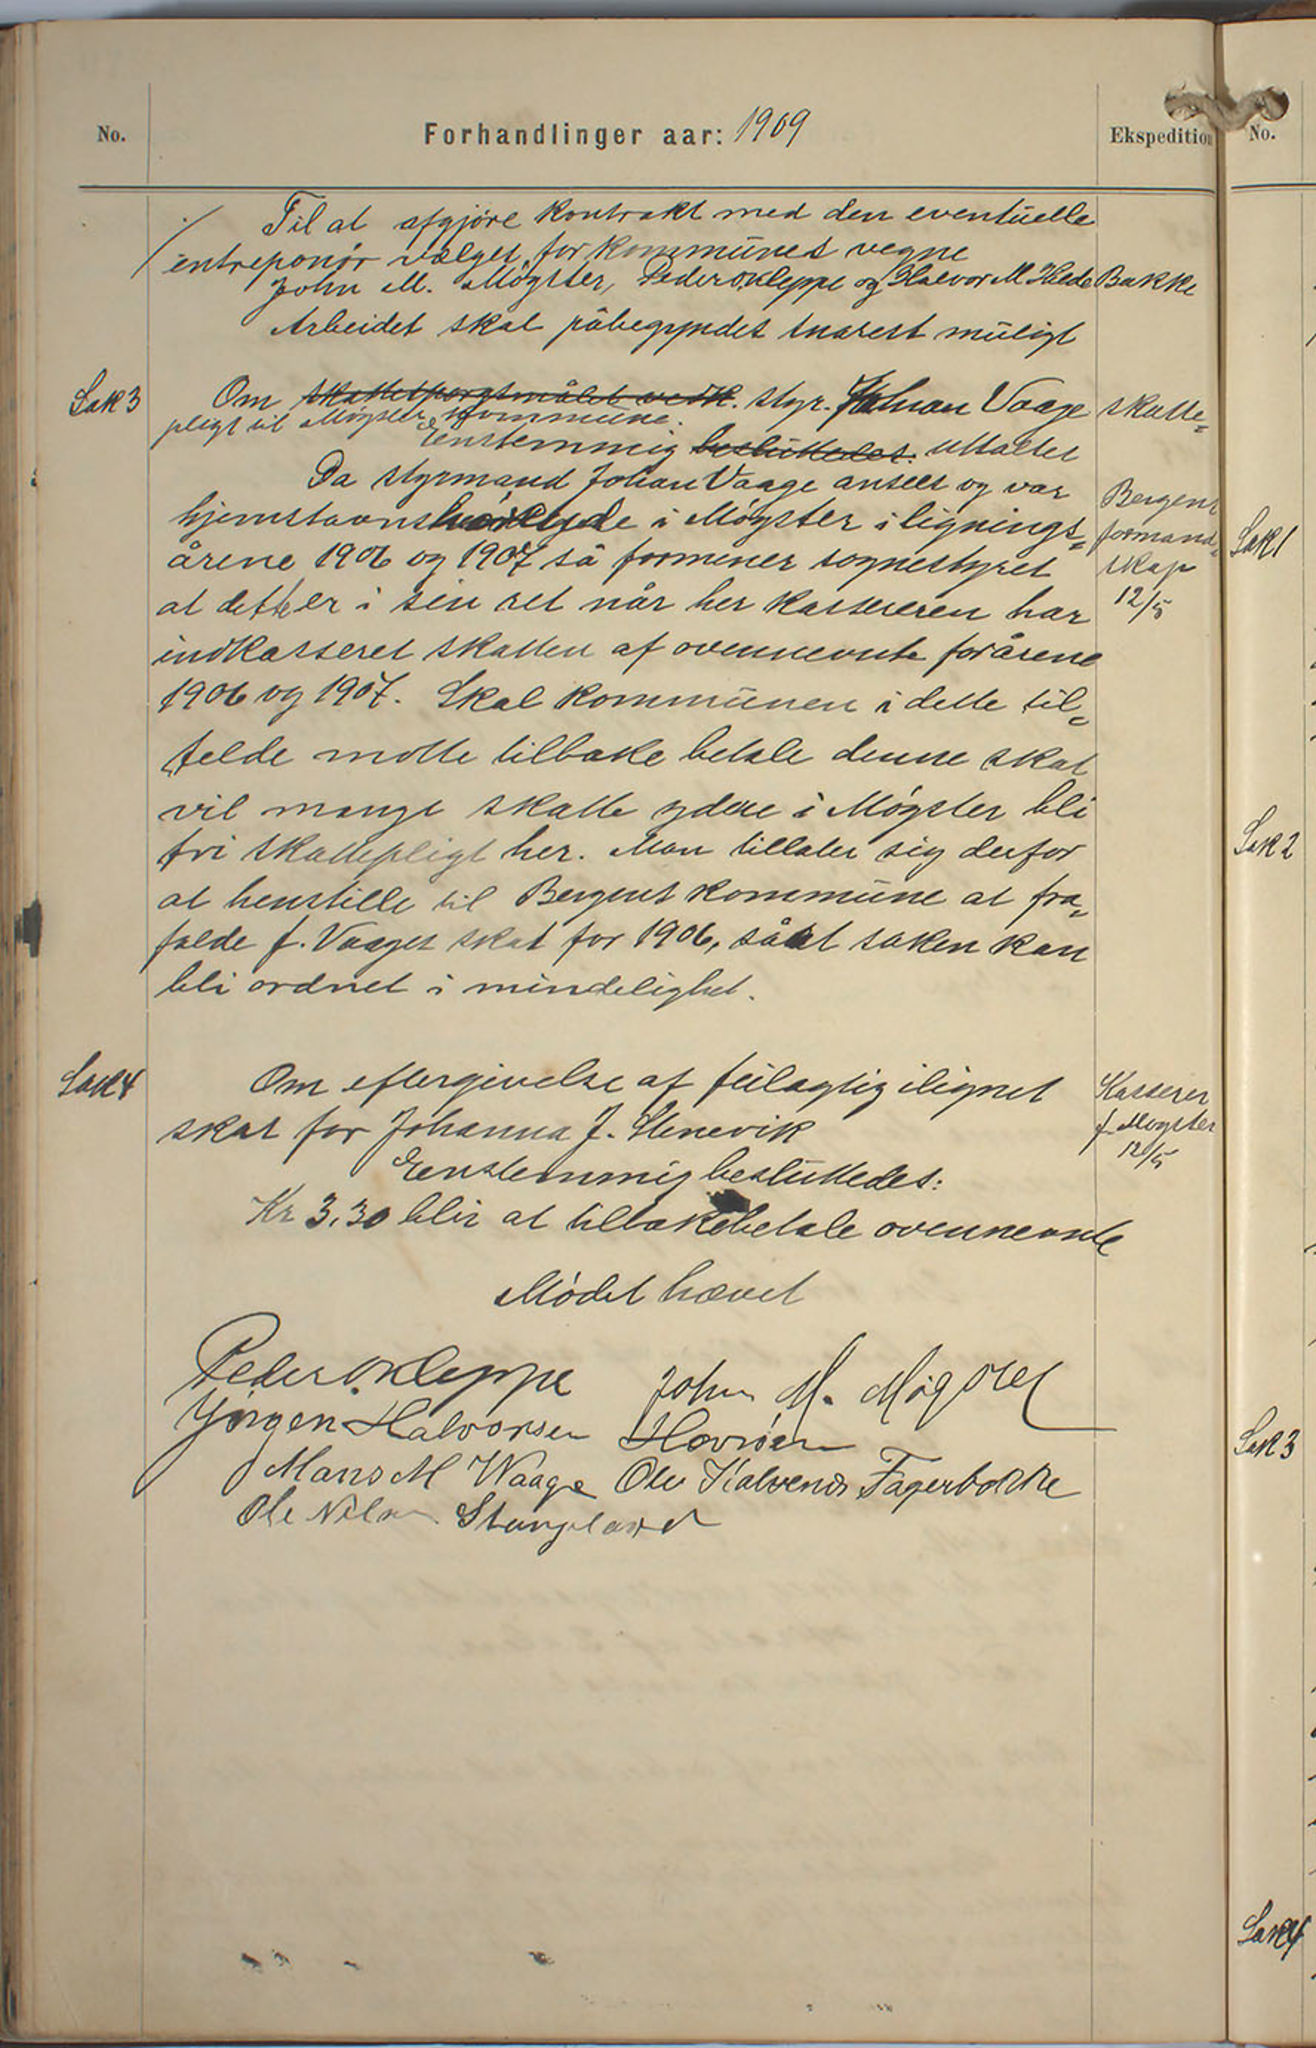 No.
Forhandlinger aar: 1909
Ekspedition
No.
Til at afgjøre kontrakt med den eventuelle
entreponør vælges for kommunes vegne
John M. Møgster, Peder O. Kleppe og Halvor M. Hilde Bakke
Arbeidet skal påbegyndes snarest muligt
Sak 3
Om skattespørgsmålet vedk. styr. Johan Vaage skatte=
pligt til Møgster kommune.
Enstemmig besluttedes: uttaltes
Da styrmand Johan Vaage ansees og var
hjemstavnshørende i Møgster i lignings=
årene 1906 og 1907 så formener sognestyret
at dette er i sin ret når her kassereren har
indkasseret skatten af ovennevnte for årene
1906 og 1907. Skal kommunen i dette til=
felde motte tilbake betale denne skat
vil mange skatte ydere i Møgster bli
fri skattepligt her. Man tillater sig derfor
at henstille til Bergens kommune at fra=
falde J. Vaages skat for 1906, såat saken kan
bli ordnet i mindelighet.
Bergens
formand=
skap
12/5
Sak 4
Om eftergivelse af feilagtig ilignet
skat for Johanna J. Stenevik
Enstemmig besluttedes:
Kr 3,30 blir at tilbakebetale ovennevnte
Kasserer
J. Møgster
12/5
Mødet hævet
Peder O. Kleppe John M. Møgster
Jørgen Halvorsen Horsøen
Mans M Waage Ole Halvorsen Fagerbakke
Ole Nilsen Stangeland
Sak 1
Sak 2
Sak 3
Sak 4